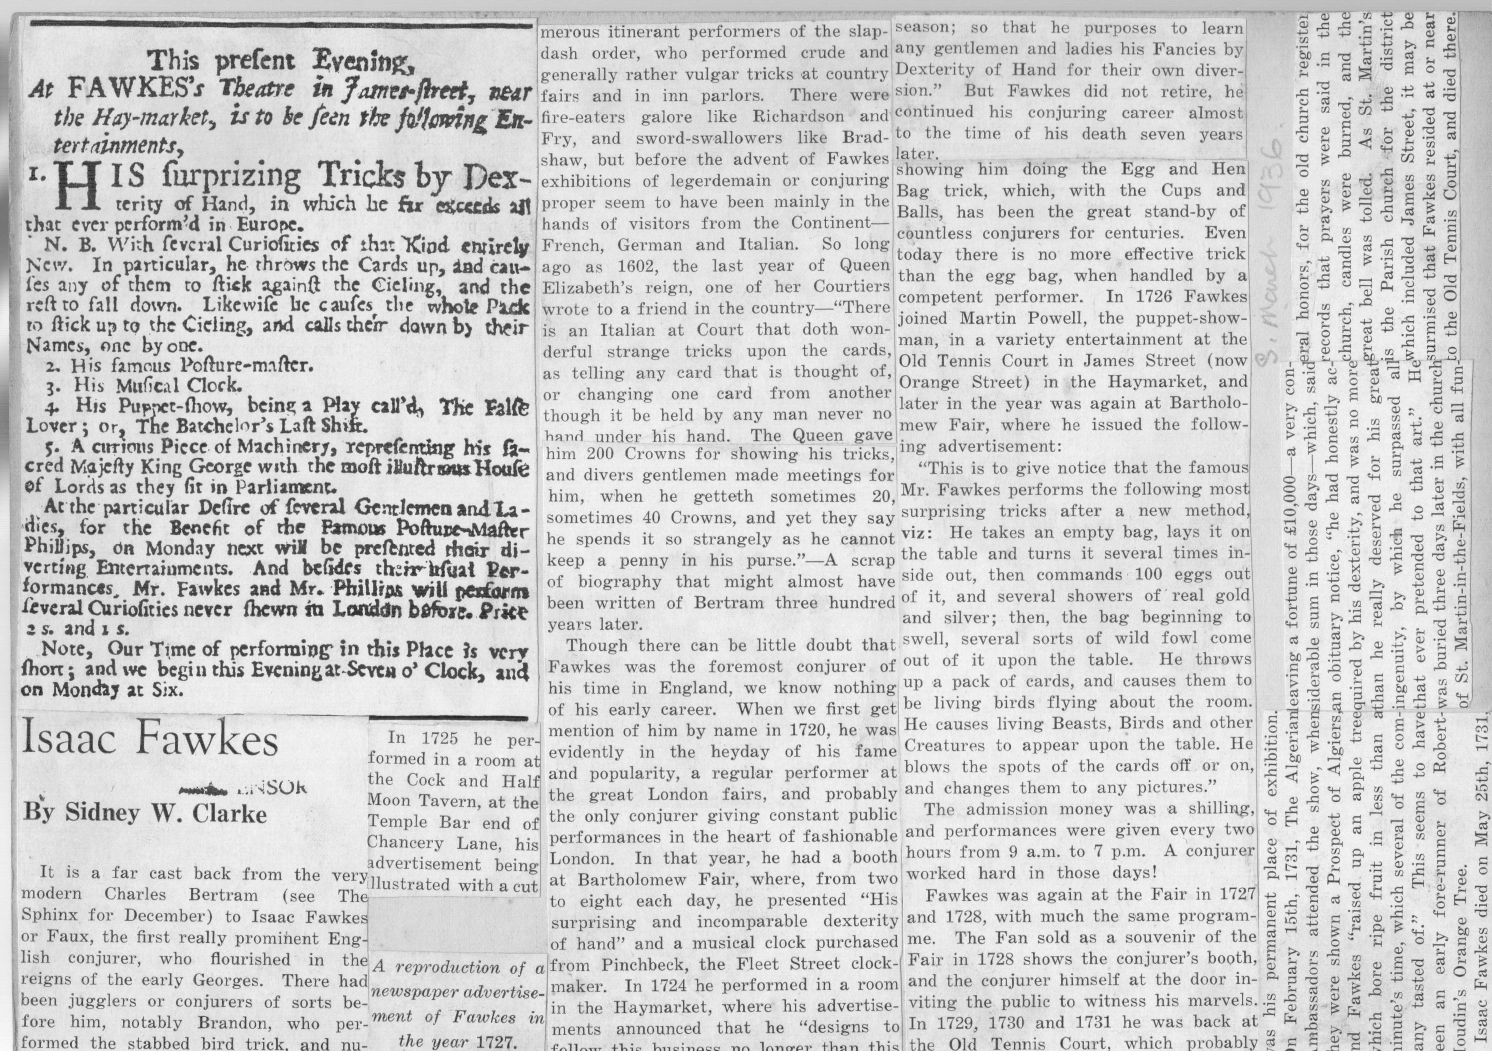 This preſent Evening,
At FAWKES's Theatre in James-ſtreet, near
the Hay-market, is to be ſeen the following En-
tertainments,
1. HIS ſurprizing Tricks by Dex-
terity of Hand, in which he far exceeds all
that ever perform'd in Europe.
N. B. With ſeveral Curioſities of that Kind entirely
New. In particular, he throws the Cards up, and cau-
ſes any of them to ſtick againſt the Cieling, and the
reſt to fall down. Likewiſe he cauſes the whole Pack
to ſtick up to the Cieling, and calls their down by their
Names, one by one.
2. His famous Poſture-maſter.
3. His Muſical Clock.
4. His Puppet-ſhow, being a Play call'd, The Falſe
Lover; or, The Batchelor's Laſt Shift.
5. A curious Piece of Machinery, repreſenting his ſa-
cred Majeſty King George with the moſt illuſtrious Houſe
of Lords as they ſit in Parliament.
At the particular Deſire of ſeveral Gentlemen and La-
dies, for the Benefit of the Famous Poſture-Maſter
Phillips, on Monday next will be preſented their di-
verting Entertainments. And beſides their uſual Per-
formances, Mr. Fawkes and Mr. Phillips will perform
ſeveral Curioſities never ſhewn in London before. Price
2 s. and 1 s.
Note, Our Time of performing in this Place is very
ſhort; and we begin this Evening at Seven o' Clock, and
on Monday at Six.
Isaac Fawkes
By Sidney W. Clarke
It is a far cast back from the very
modern Charles Bertram (see The
Sphinx for December) to Isaac Fawkes
or Faux, the first really prominent Eng-
lish conjurer, who flourished in the
reigns of the early Georges. There had
been jugglers or conjurers of sorts be-
fore him, notably Brandon, who per-
formed the stabbed bird trick, and nu-
In 1725 he per-
formed in a room at
the Cock and Half
Moon Tavern, at the
Temple Bar end of
Chancery Lane, his
advertisement being
illustrated with a cut
A reproduction of a
newspaper advertise-
ment of Fawkes in
the year 1727.
merous itinerant performers of the slap-
dash order, who performed crude and
generally rather vulgar tricks at country
fairs and in inn parlors. There were
fire-eaters galore like Richardson and
Fry, and sword-swallowers like Brad-
shaw, but before the advent of Fawkes
exhibitions of legerdemain or conjuring
proper seem to have been mainly in the
hands of visitors from the Continent—
French, German and Italian. So long
ago as 1602, the last year of Queen
Elizabeth's reign, one of her Courtiers
wrote to a friend in the country—"There
is an Italian at Court that doth won-
derful strange tricks upon the cards,
as telling any card that is thought of,
or changing one card from another
though it be held by any man never no
hand under his hand. The Queen gave
him 200 Crowns for showing his tricks,
and divers gentlemen made meetings for
him, when he getteth sometimes 20,
sometimes 40 Crowns, and yet they say
he spends it so strangely as he cannot
keep a penny in his purse."—A scrap
of biography that might almost have
been written of Bertram three hundred
years later.
Though there can be little doubt that
Fawkes was the foremost conjurer of
his time in England, we know nothing
of his early career. When we first get
mention of him by name in 1720, he was
evidently in the heyday of his fame
and popularity, a regular performer at
the great London fairs, and probably
the only conjurer giving constant public
performances in the heart of fashionable
London. In that year, he had a booth
at Bartholomew Fair, where, from two
to eight each day, he presented "His
surprising and incomparable dexterity
of hand" and a musical clock purchased
from Pinchbeck, the Fleet Street clock-
maker. In 1724 he performed in a room
in the Haymarket, where his advertise-
ments announced that he "designs to
follow this business no longer than this
season; so that he purposes to learn
any gentlemen and ladies his Fancies by
Dexterity of Hand for their own diver-
sion." But Fawkes did not retire, he
continued his conjuring career almost
to the time of his death seven years
later.
showing him doing the Egg and Hen
Bag trick, which, with the Cups and
Balls, has been the great stand-by of
countless conjurers for centuries. Even
today there is no more effective trick
than the egg bag, when handled by a
competent performer. In 1726 Fawkes
joined Martin Powell, the puppet-show-
man, in a variety entertainment at the
Old Tennis Court in James Street (now
Orange Street) in the Haymarket, and
later in the year was again at Bartholo-
mew Fair, where he issued the follow-
ing advertisement:
"This is to give notice that the famous
Mr. Fawkes performs the following most
surprising tricks after a new method,
viz: He takes an empty bag, lays it on
the table and turns it several times in-
side out, then commands 100 eggs out
of it, and several showers of real gold
and silver; then, the bag beginning to
swell, several sorts of wild fowl come
out of it upon the table. He throws
up a pack of cards, and causes them to
be living birds flying about the room.
He causes living Beasts, Birds and other
Creatures to appear upon the table. He
blows the spots of the cards off or on,
and changes them to any pictures."
The admission money was a shilling,
and performances were given every two
hours from 9 a.m. to 7 p.m. A conjurer
worked hard in those days!
Fawkes was again at the Fair in 1727
and 1728, with much the same program-
me. The Fan sold as a souvenir of the
Fair in 1728 shows the conjurer's booth,
and the conjurer himself at the door in-
viting the public to witness his marvels.
In 1729, 1730 and 1731 he was back at
the Old Tennis Court, which probably
was his permanent place of exhibition.
On February 15th, 1731, The Algerian
mbassadors attended the show, when
hey were shown a Prospect of Algiers,
nd Fawkes "raised up an apple tree
which bore ripe fruit in less than a
minute's time, which several of the com-
any tasted of." This seems to have
een an early fore-runner of Robert-
oudin's Orange Tree.
Isaac Fawkes died on May 25th, 1731,
leaving a fortune of £10,000—a very con-
siderable sum in those days—which, said
an obituary notice, "he had honestly ac-
quired by his dexterity, and was no more
than he really deserved for his great
ingenuity, by which he surpassed all
that ever pretended to that art." He
was buried three days later in the church
of St. Martin-in-the-Fields, with all fun-
eral honors, for the old church register
records that prayers were said in the
church, candles were burned, and the
great bell was tolled. As St. Martin's
is the Parish church for the district
which included James Street, it may be
surmised that Fawkes resided at or near
to the Old Tennis Court, and died there.
March 1936